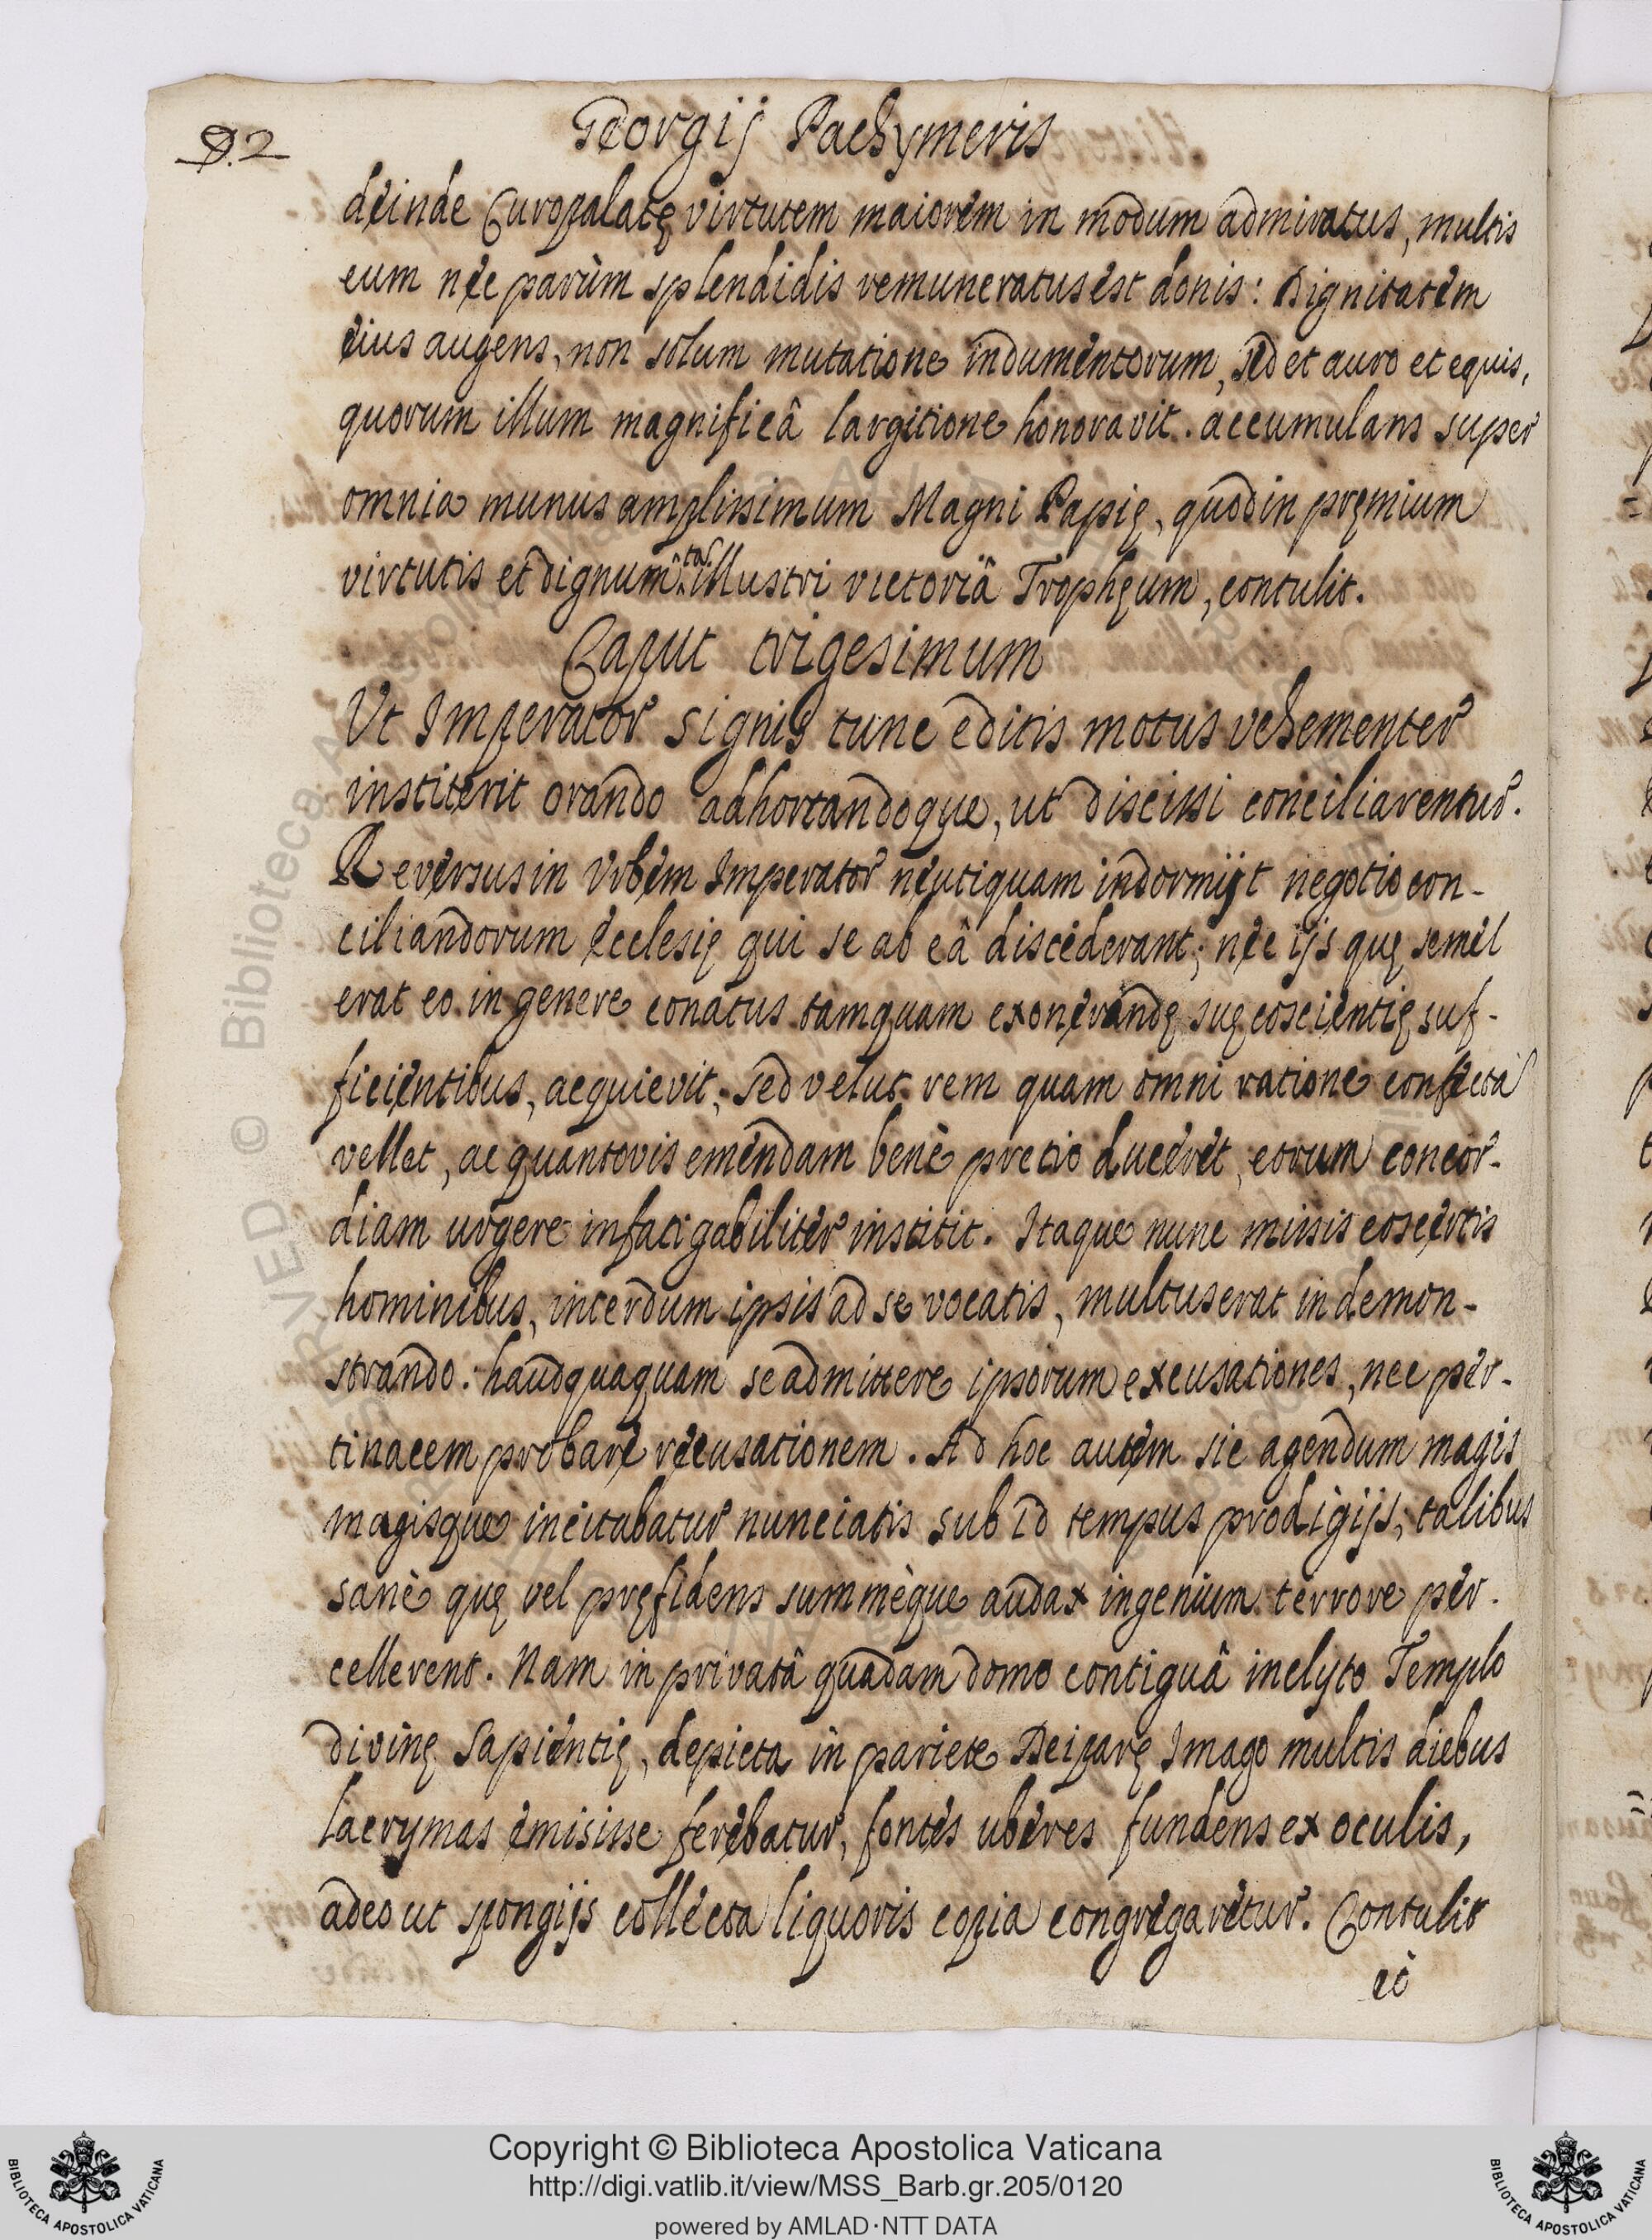 92
Georgij Pachymeris
deinde Curopalatę virtutem maiorem in modum admiratus, multis
eum nec parùm splendidis remuneratus est donis: Dignitatem
eius augens, non solum mutatione indumentorum, sed et auro et equis,
quorum illum magnificâ largitione honoravit. accumulans super
omnia munus amplissimum Magni Papię, quod in pręmium
virtutis et dignum illustri victoriâ Trophęum, contulit.
Caput trigesimum
Vt Imperator signis tunc editis motus vehementer
institerit orando adhortandoque, ut discissi conciliarentur.
Reversus in Vrbem Imperator neutiquam indormijt negotio con-
ciliandorum ecclesię qui se ab eâ discederant; nec ijs quę semel
erat eo in genere conatus tamquam exonerandę suę coscientię suf-
ficientibus, acquievit; sed velut rem quam omni ratione confecta
vellet, ac quantovis emendam benè pretio duceret, eorum concor-
diam urgere infatigabiliter institit. Itaque nunc missis eo scertis
hominibus, interdum ipsis ad se vocatis, multus erat in demon-
strando: haudquaquam se admittere ipsorum excusationes, nec per-
tinacem probare recusationem. Ad hoc autem sic agendum magis
magisque incitabatur nunciatis sub id tempus prodigijs; talibus
sanè quę vel pręfidens summèque audax ingenium terrore per-
cellerent. Nam in privatâ quadam domo contiguâ inclyto Templo
divinę Sapientię, depicta in pariete Deiparę Imago multis diebus
lacrymas emisisse ferebatur, fontes uberes fundens ex oculis,
adeo ut spongijs collecta liquoris copia congregaretur. Contulit
eò
RESERVED © Biblioteca Apostolica Vaticana
Copyright © Biblioteca Apostolica Vaticana
http://digi.vatlib.it/view/MSS_Barb.gr.205/0120
powered by AMLAD·NTT DATA
BIBLIOTECA APOSTOLICA VATICANA
BIBLIOTECA APOSTOLICA VATICANA